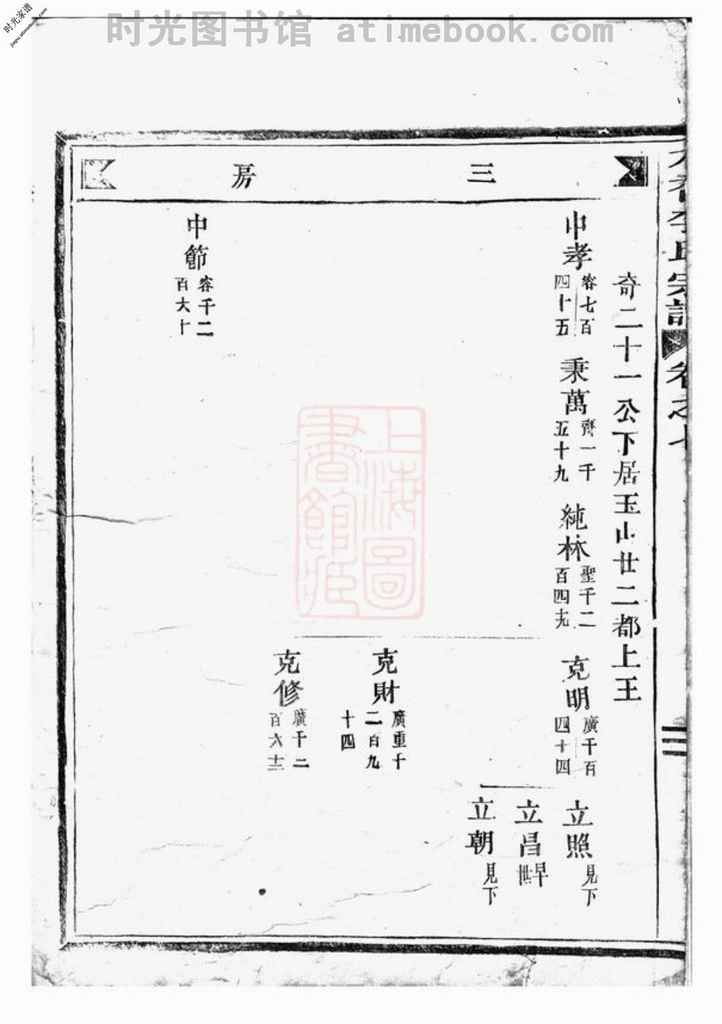 时光图书馆 atimebook.com
时光家谱
李氏宗譜 卷之七
三房
奇二十一公下居玉山廿二都上王
中孝 容七百四十五
秉萬 齊一千五十九
純林 聖千二百四十九
克明 廣千百四十四
立照 見下
立昌 早世
立朝 見下
克財 廣重千二百九十四
克修 廣千二百六十三
中節 容千二百六十
上海圖書館藏